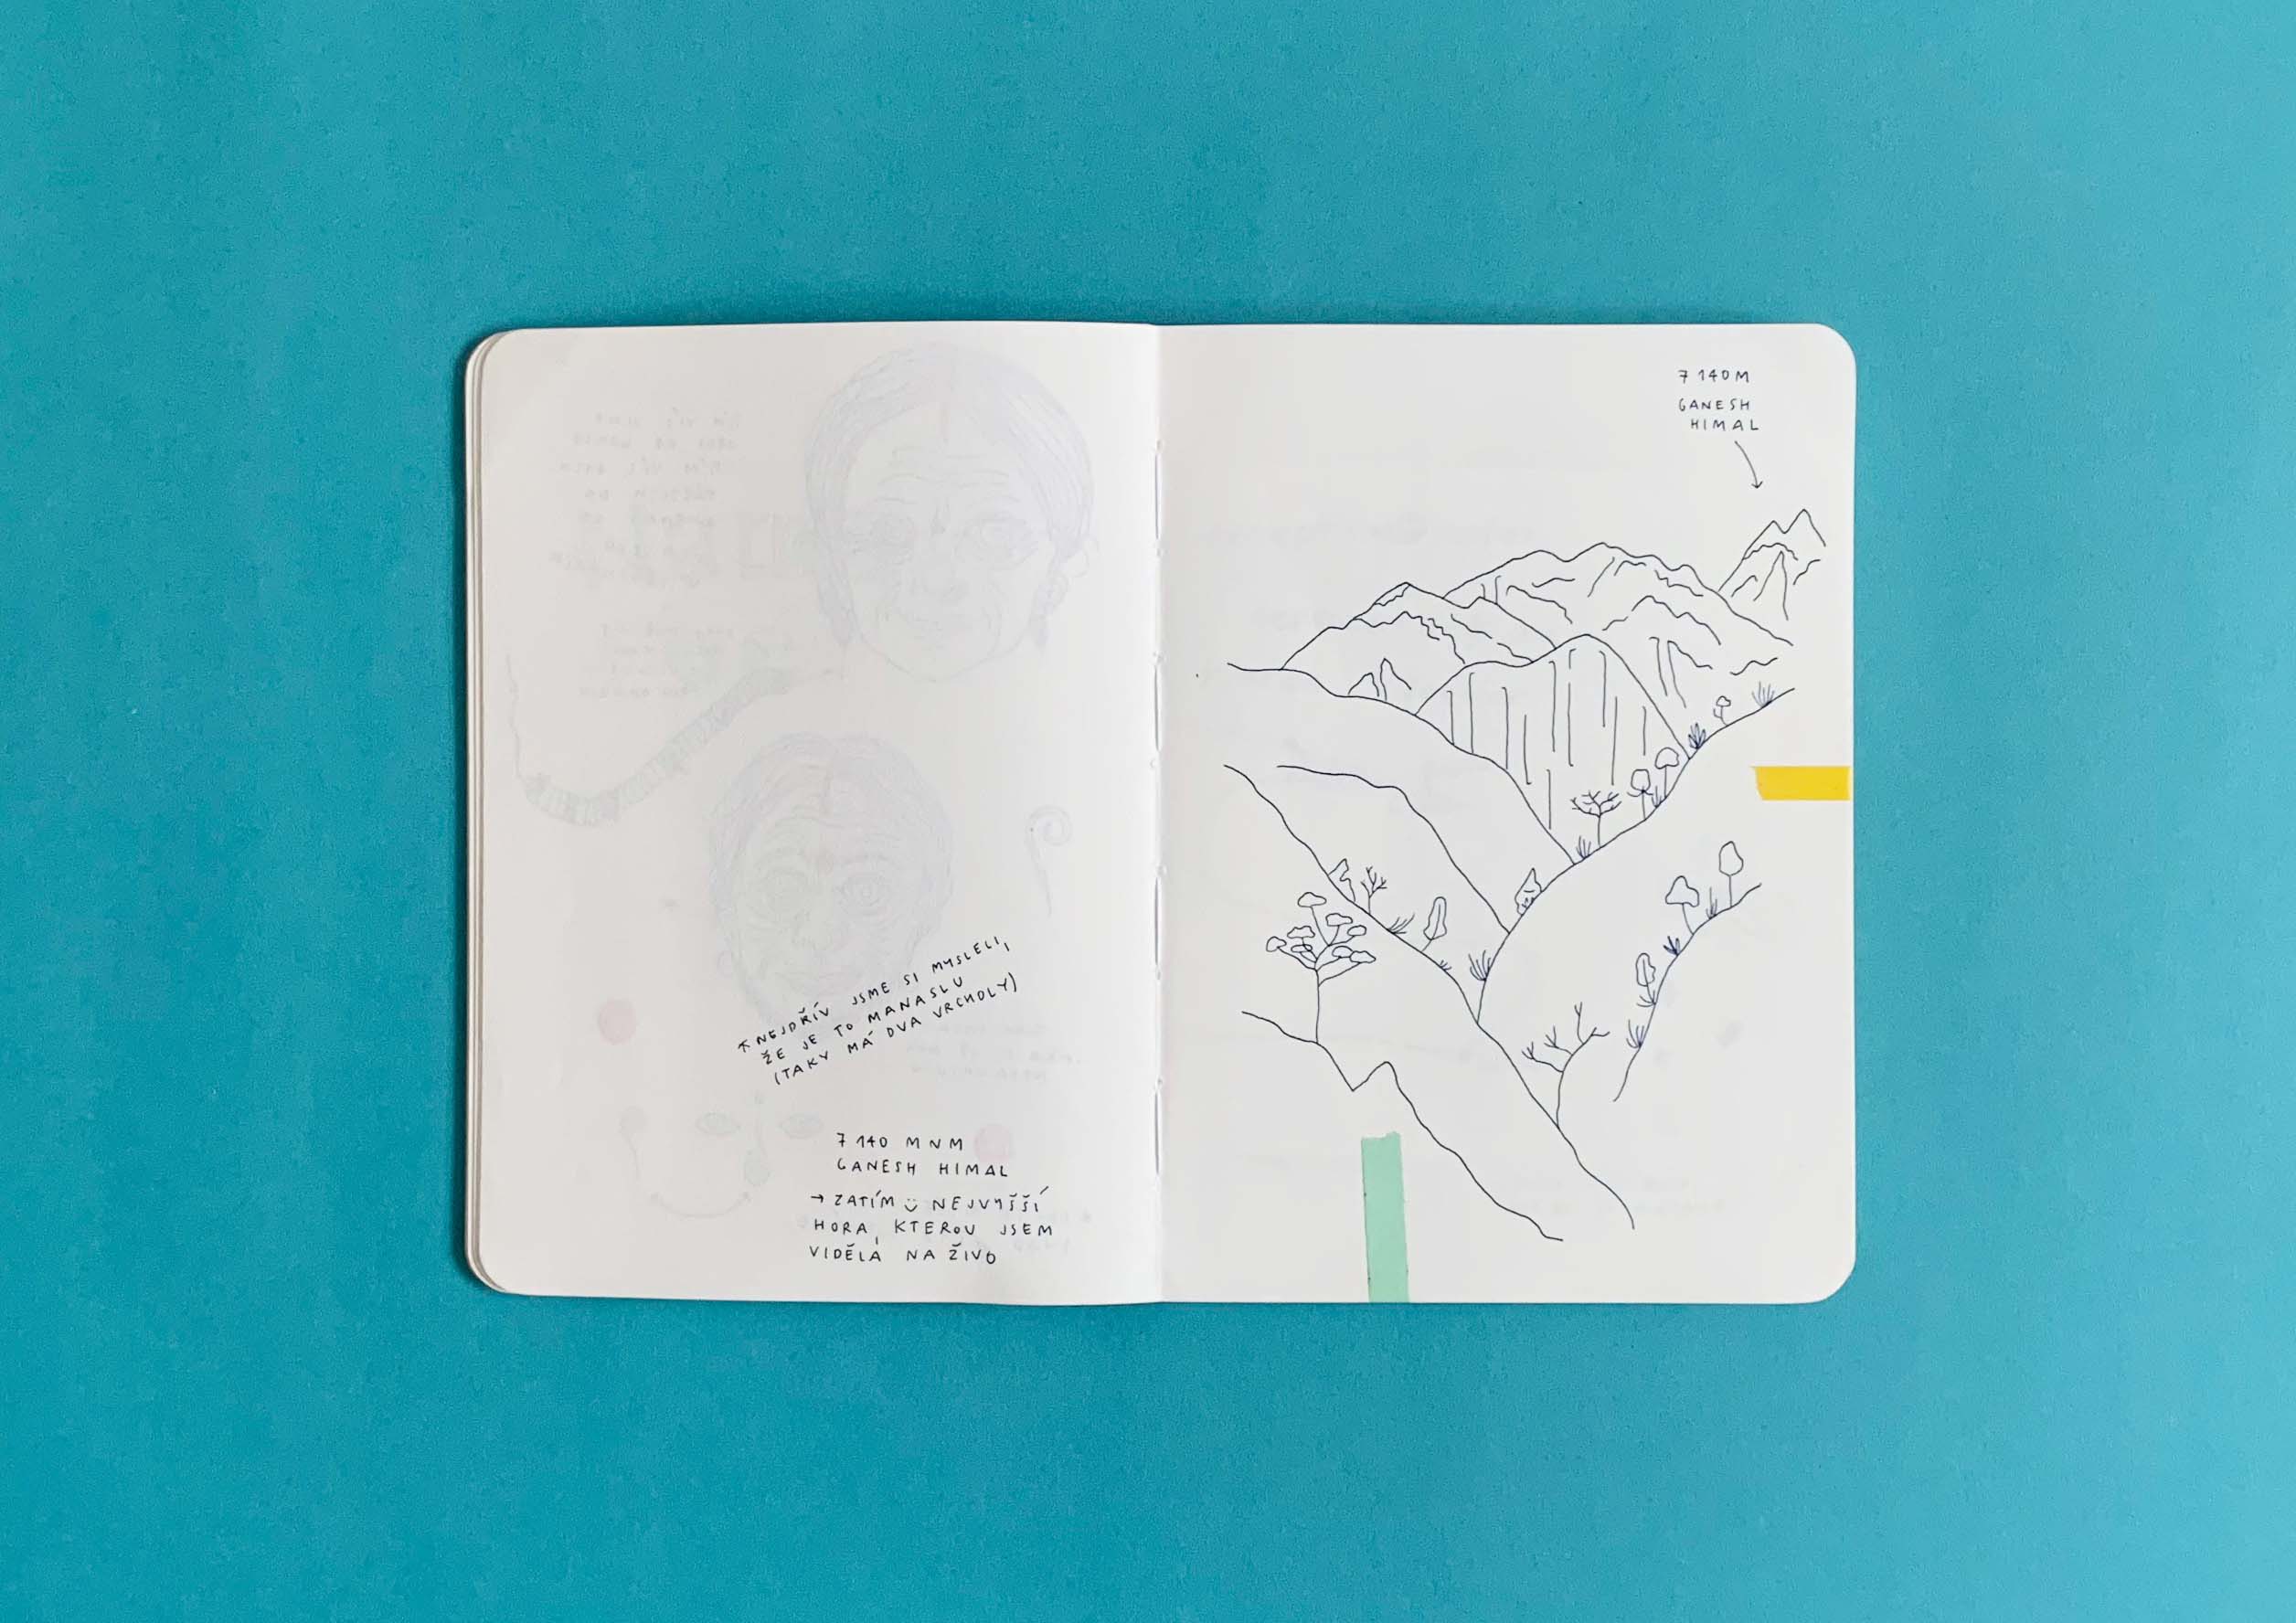 ↖ NEJDŘÍV JSME SI MYSLELI,
ŽE JE TO MANASLU
(TAKY MÁ DVA VRCHOLY)
7 140 M N M
GANESH HIMAL
→ ZATÍM ü NEJVYŠŠÍ
HORA, KTEROU JSEM
VIDĚLA NA ŽIVO
7 140 M
GANESH
HIMAL